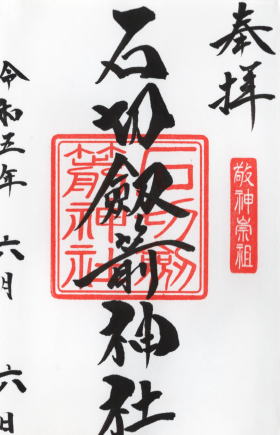 奉拝
敬神崇祖
石切劔箭神社
石切劔
箭神社
令和五年 六月 六日